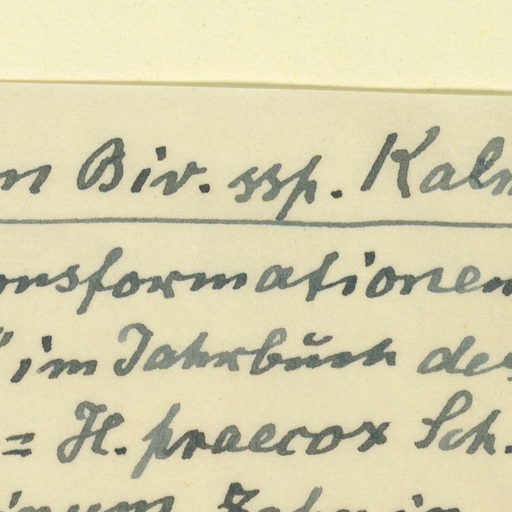 n Biv. ssp. Kaln
onsformationen
" im Jahrbuch des
= H. praecox Sch.